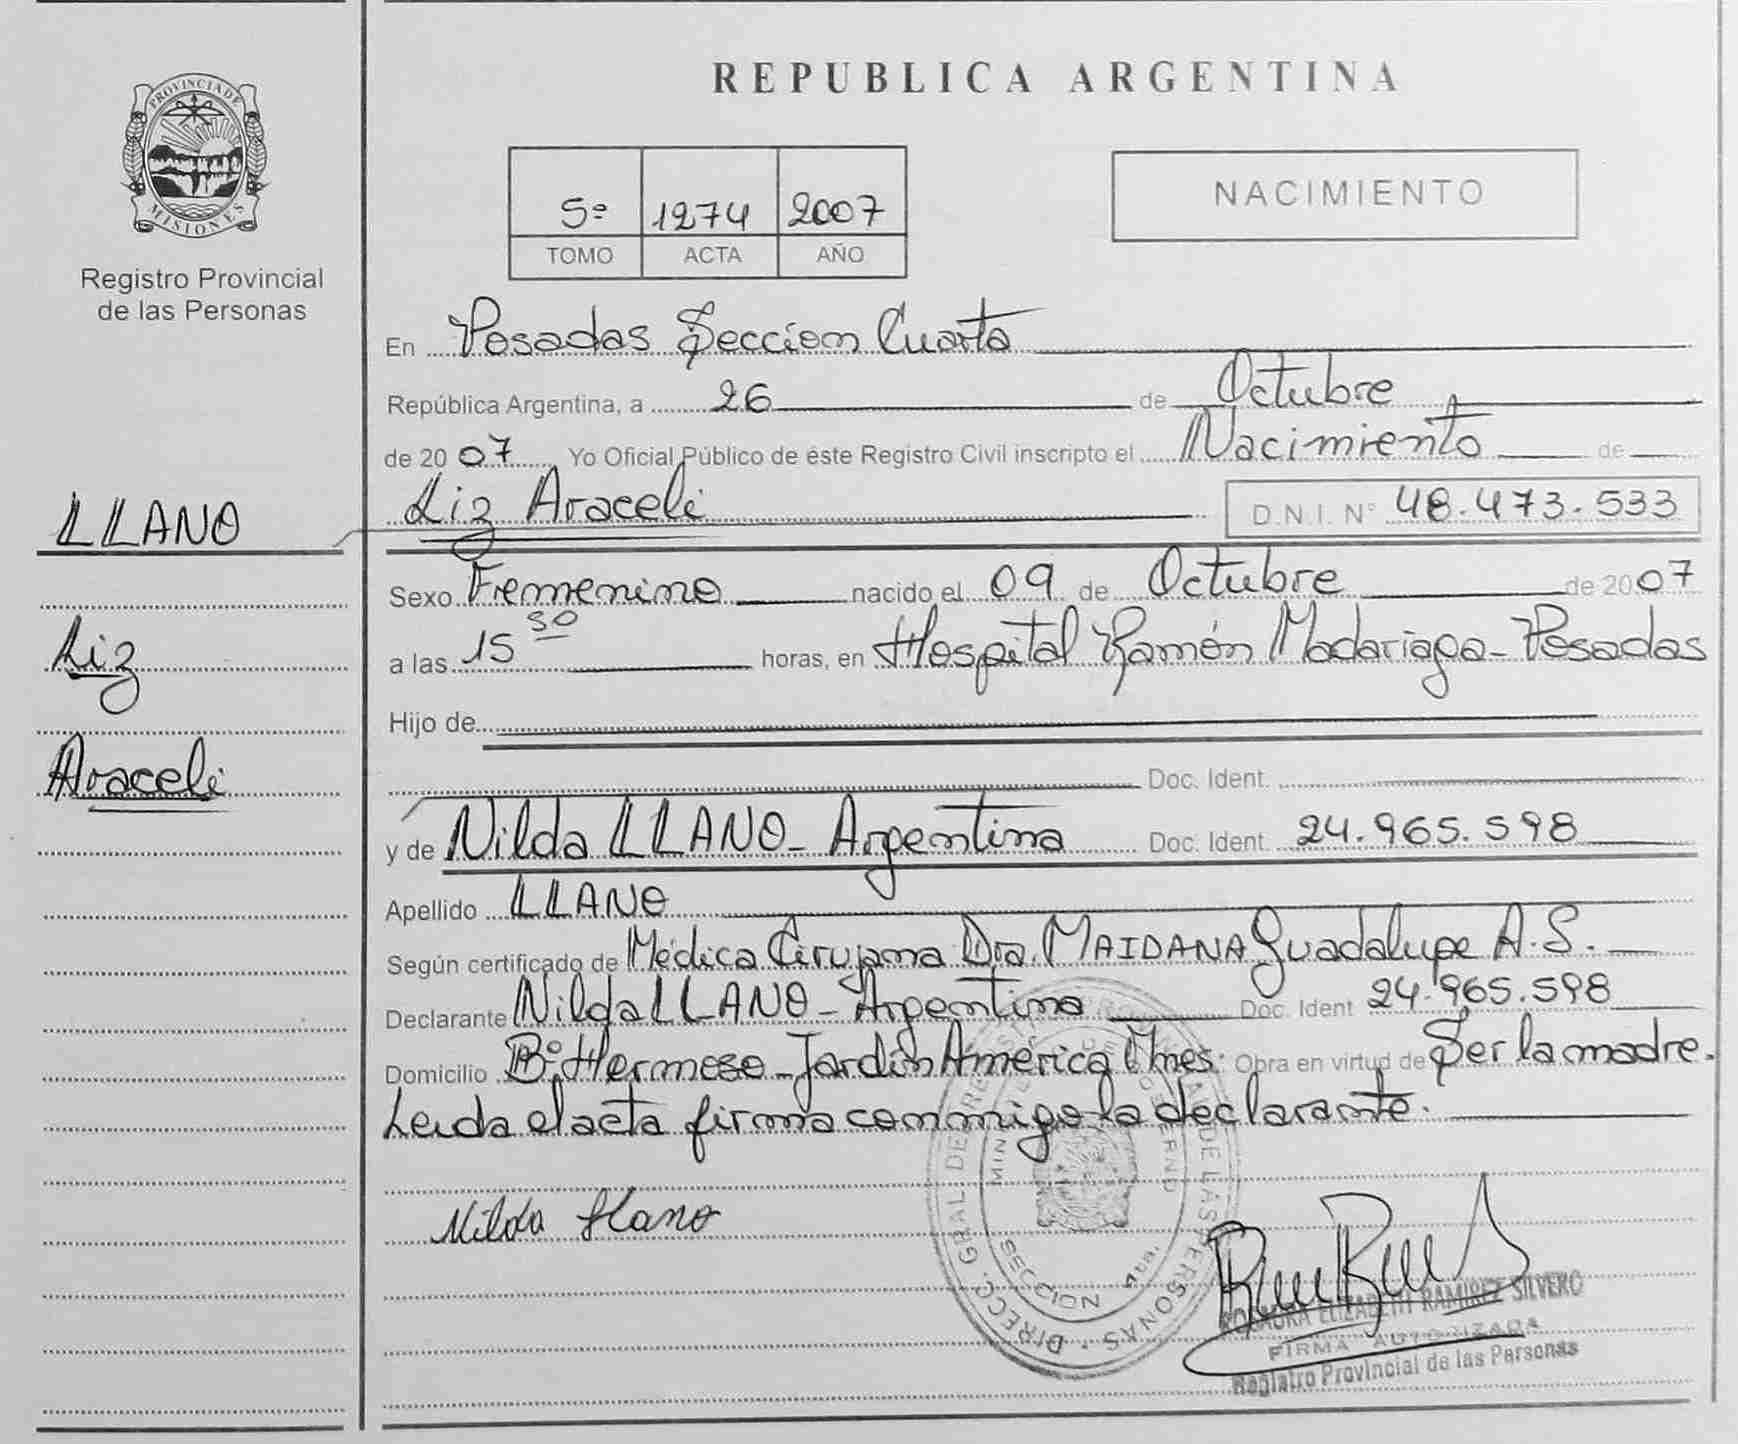 PROVINCIA DE
MISIONES
Registro Provincial
de las Personas
LLANO
Liz
Araceli
REPUBLICA ARGENTINA
5º 1274 2007
TOMO ACTA AÑO
NACIMIENTO
En Posadas Seccion Cuarta
República Argentina, a 26 de Octubre
de 2007 Yo Oficial Público de éste Registro Civil inscripto el Nacimiento de
Liz Araceli D.N.I. Nº 48.473.533
Sexo Femenino nacido el 09 de Octubre de 2007
a las 15 30 horas, en Hospital Ramón Madariaga - Posadas
Hijo de
Doc. Ident.
y de Nilda LLANO - Argentina Doc. Ident. 24.965.598
Apellido LLANO
Según certificado de Médica Cirujana Dra. MAIDANA Guadalupe A.S.
Declarante Nilda LLANO - Argentina Doc. Ident 24.965.598
Domicilio Bº Hermoso - Jardín America Mnes. Obra en virtud de Ser la madre.
Leida el acta firma conmigo la declarante.
Nilda Llano
ELIZABETH RAMIREZ SILVERO
FIRMA AUTORIZADA
Registro Provincial de las Personas